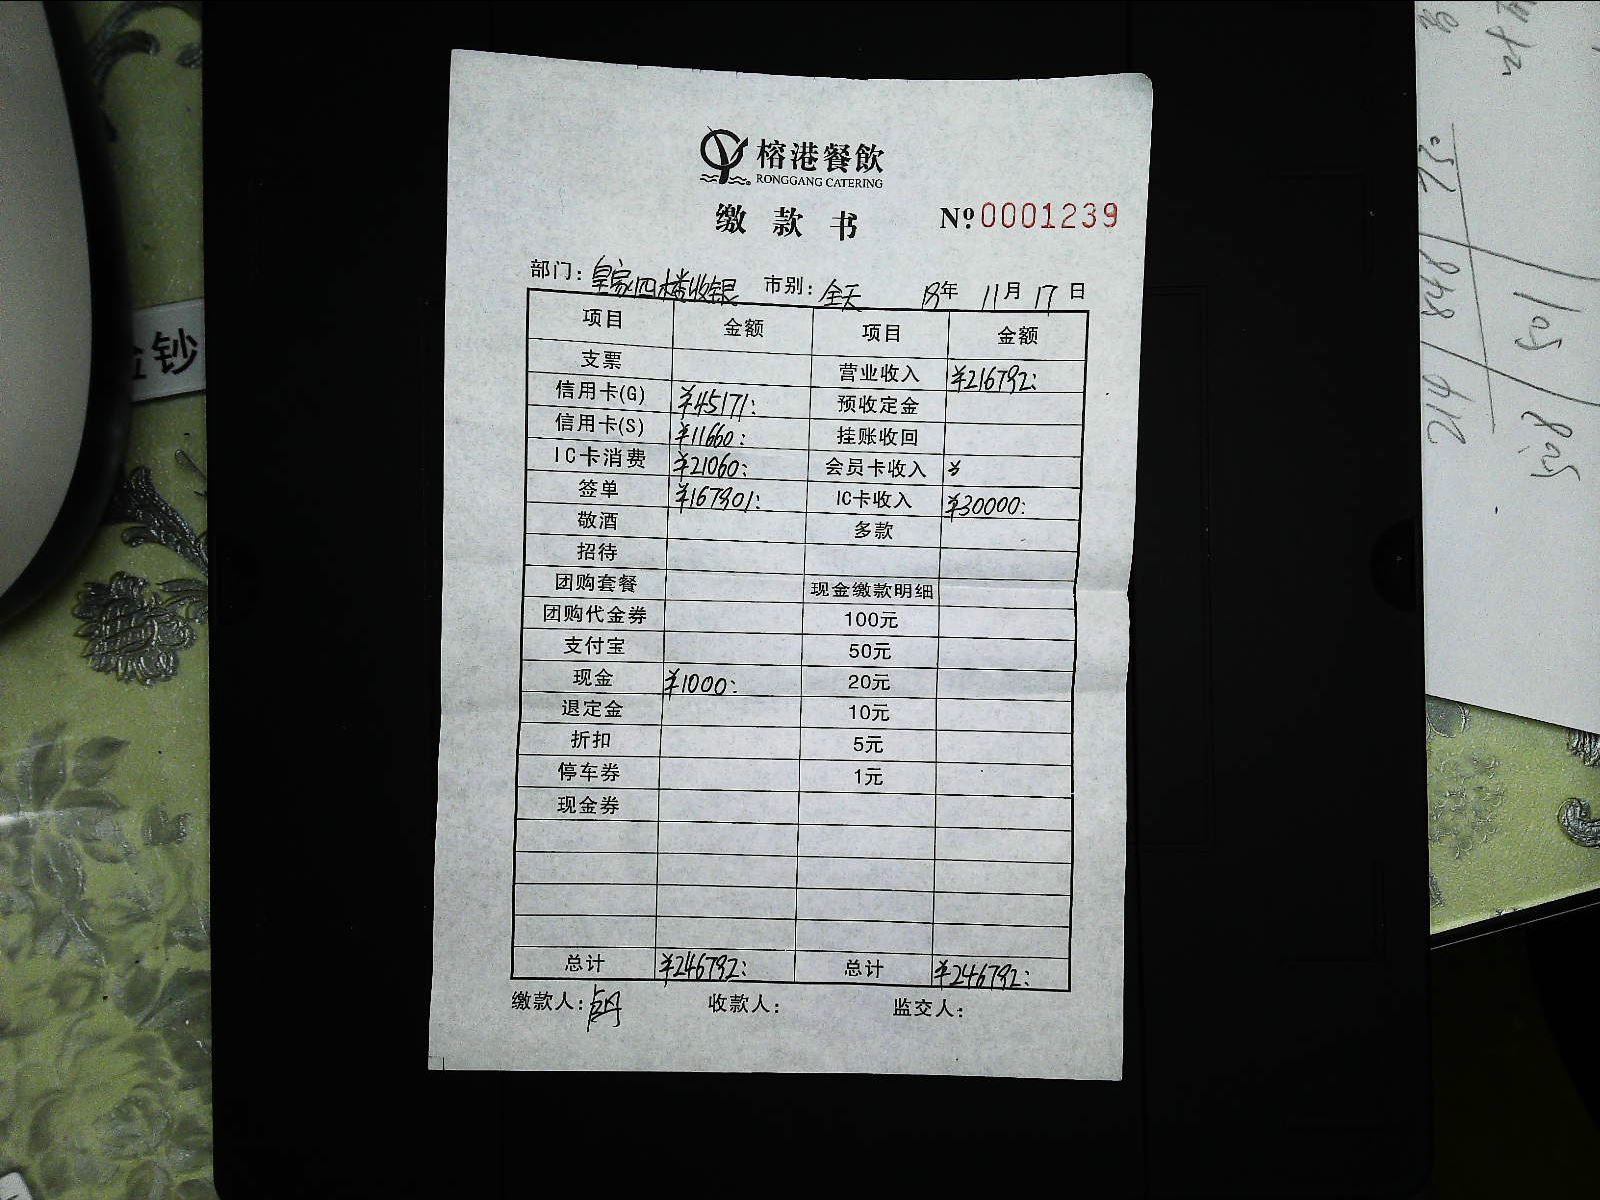 榕港餐飲
RONGGANG CATERING
缴款书 Nº:0001239
部门：皇家四楼收银 市别：全天 19年 11月 17日
项目 金额 项目 金额
支票 营业收入 ¥216792:
信用卡(G) ¥45171: 预收定金
信用卡(S) ¥11660: 挂账收回
IC卡消费 ¥21060: 会员卡收入 ¥
签单 ¥167901: IC卡收入 ¥30000:
敬酒 多款
招待
团购套餐 现金缴款明细
团购代金券 100元
支付宝 50元
现金 ¥1000: 20元
退定金 10元
折扣 5元
停车券 1元
现金券
总计 ¥246792: 总计 ¥246792:
缴款人：卢丹 收款人： 监交人：
钞